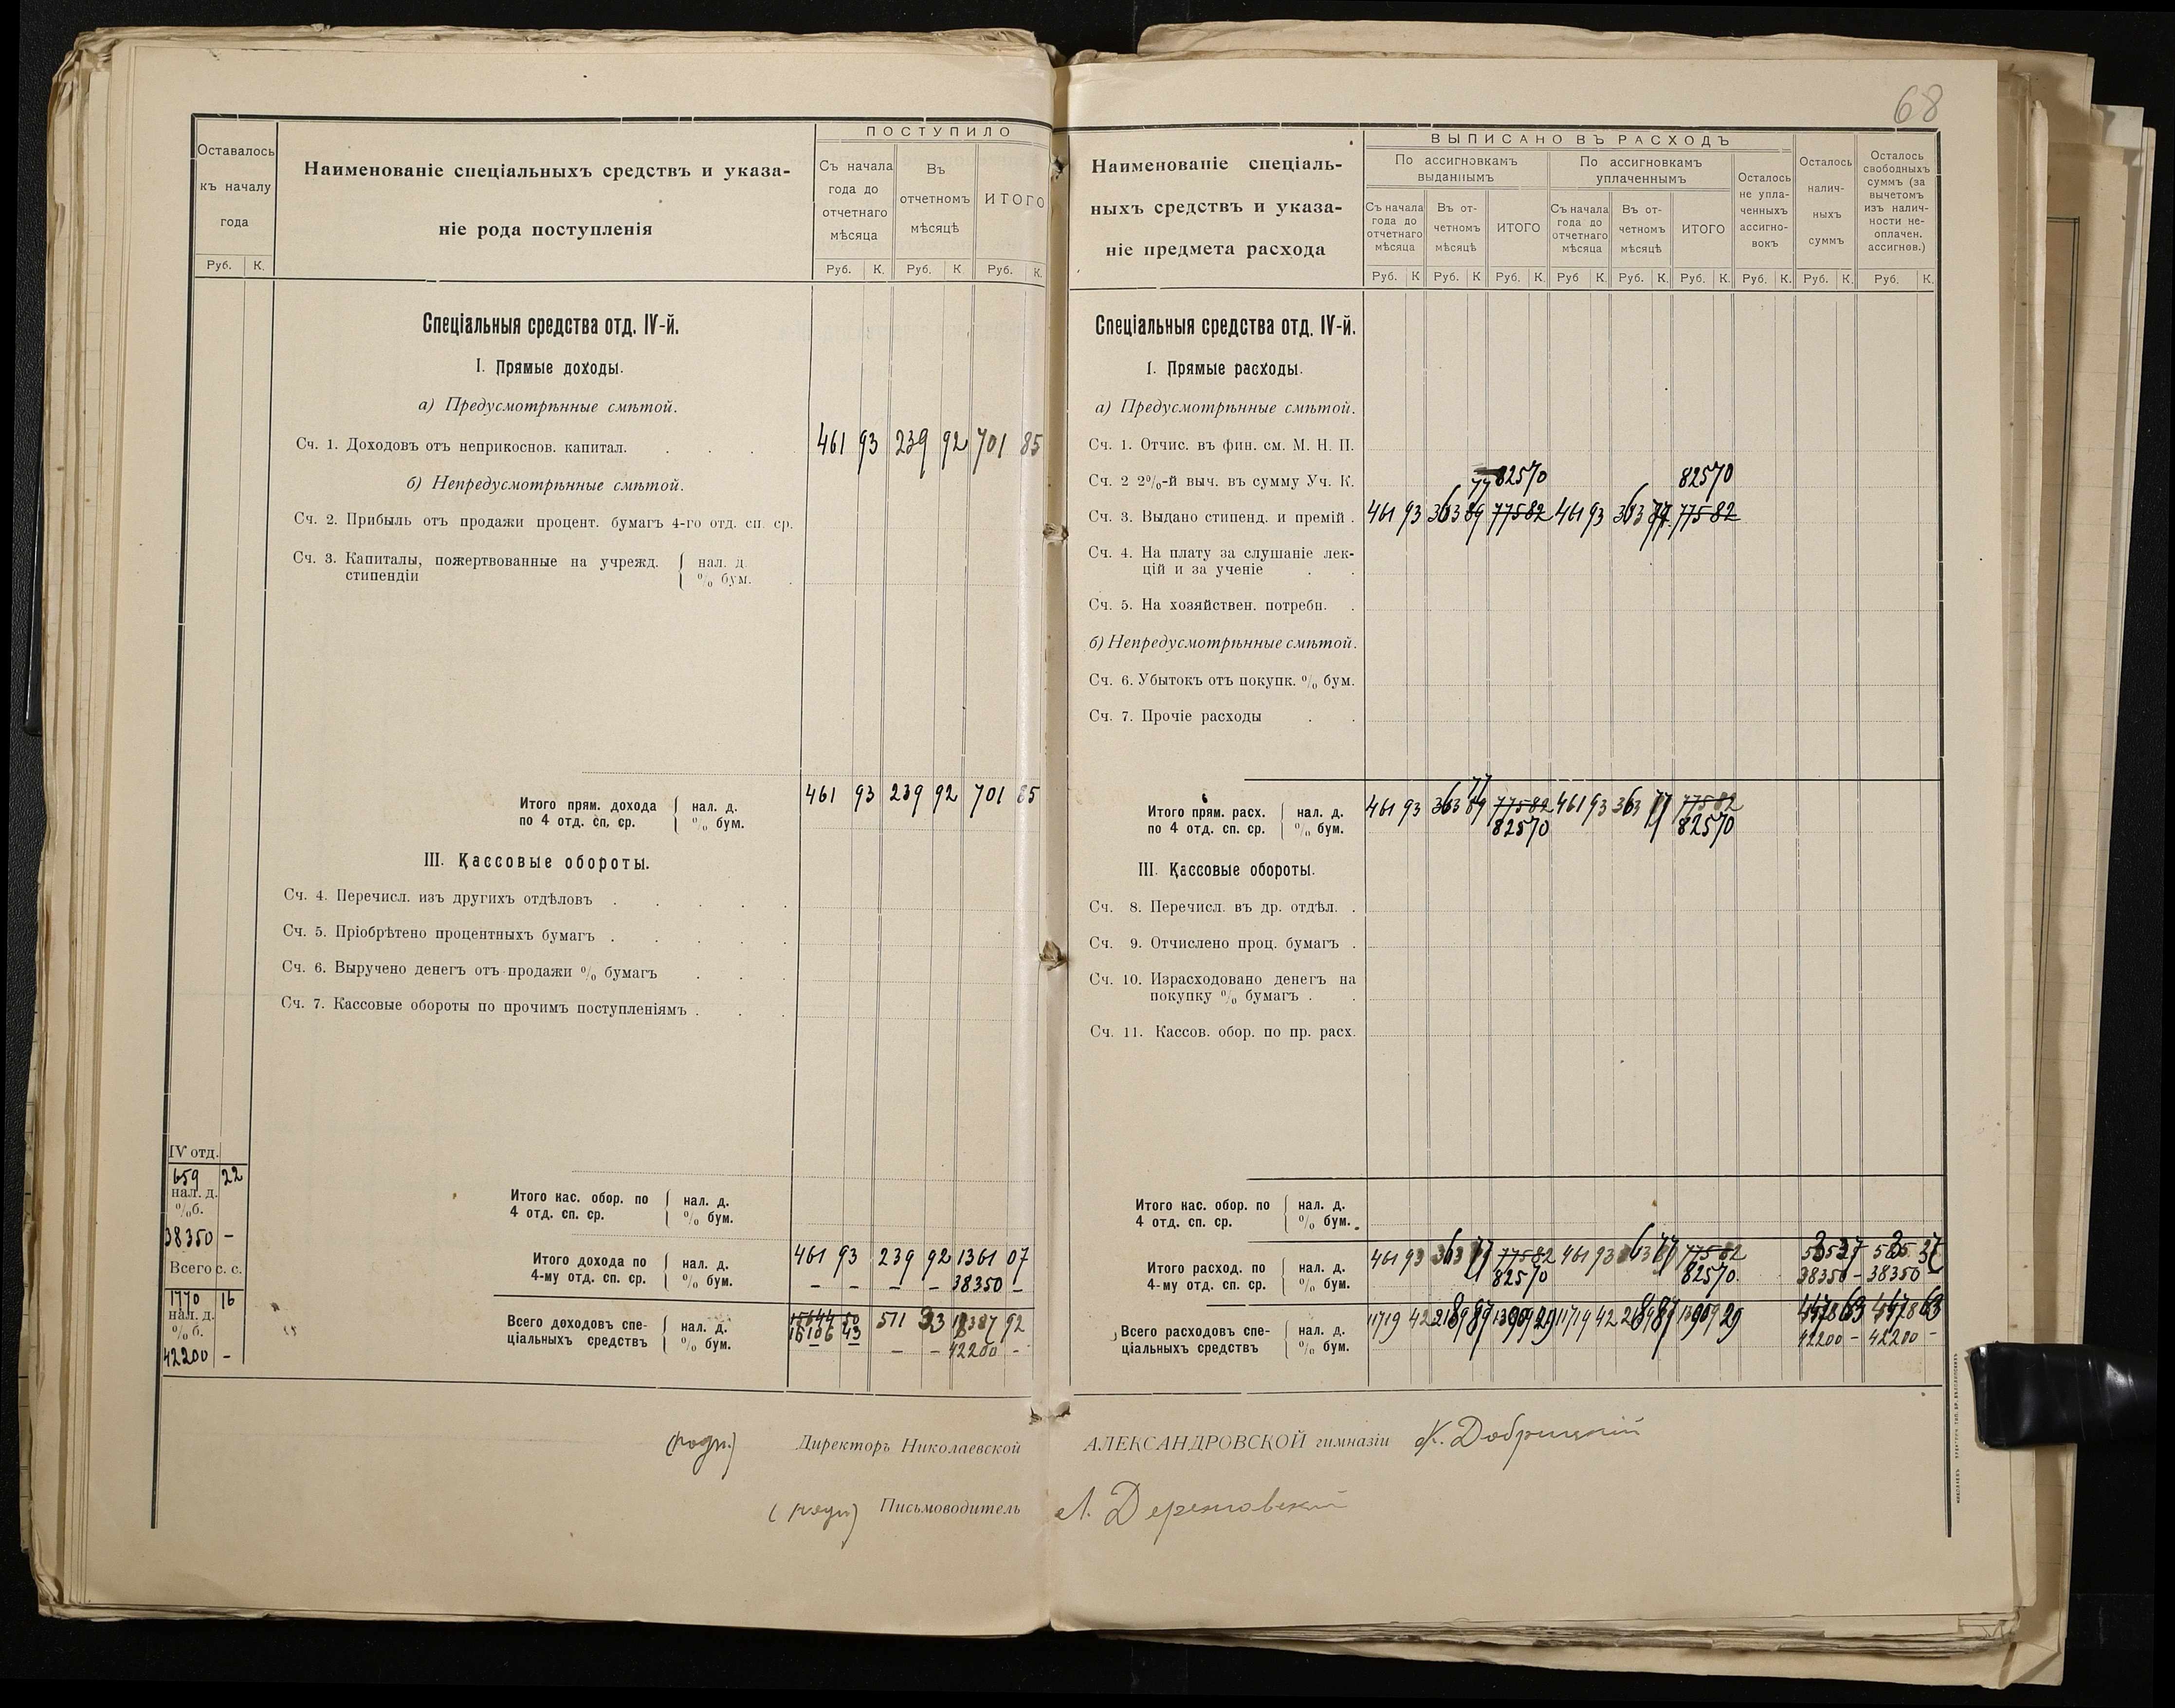 68
ПОСТУПИЛО
Оставалось къ началу года
Наименованіе спеціальныхъ средствъ и указа-
ніе рода поступленія
Съ начала года до отчетнаго мѣсяца
Въ отчетномъ мѣсяцѣ
ИТОГО
Руб. К. Руб. К. Руб. К. Руб. К.
Спеціальныя средства отд. IV-й.
I. Прямые доходы.
а) Предусмотрѣнные смѣтой.
Сч. 1. Доходовъ отъ неприкоснов. капитал. . . . 461 93 239 92 701 85
б) Непредусмотрѣнные смѣтой.
Сч. 2. Прибыль отъ продажи процент. бумагъ 4-го отд. сп. ср.
Сч. 3. Капиталы, пожертвованные на учрежд. нал. д.
стипендіи % бум.
Итого прям. дохода нал. д. 461 93 239 92 701 85
по 4 отд. сп. ср. % бум.
III. Кассовые обороты.
Сч. 4. Перечисл. изъ другихъ отдѣловъ . . . . .
Сч. 5. Пріобрѣтено процентныхъ бумагъ . . . . .
Сч. 6. Выручено денегъ отъ продажи % бумагъ . . .
Сч. 7. Кассовые обороты по прочимъ поступленіямъ . . .
IV отд.
659 22
нал. д.
% б.
38350 -
Всего с. с.
1770 16
нал. д.
% б.
42200 -
Итого кас. обор. по нал. д.
4 отд. сп. ср. % бум.
Итого дохода по нал. д. 461 93 239 92 1361 07
4-му отд. сп. ср. % бум. - - - - 38350 -
Всего доходовъ спе- нал. д. 15644 50 571 33 18387 92
ціальныхъ средствъ % бум. 16106 43 - - 42200 -
(подп.) Директоръ Николаевской
(подп) Письмоводитель
ВЫПИСАНО ВЪ РАСХОДЪ
Наименованіе спеціаль-
ныхъ средствъ и указа-
ніе предмета расхода
По ассигновкамъ выданнымъ
По ассигновкамъ уплаченнымъ
Съ начала года до отчетнаго мѣсяца
Въ от-четномъ мѣсяцѣ
ИТОГО
Съ начала года до отчетнаго мѣсяца
Въ от-четномъ мѣсяцѣ
ИТОГО
Осталось не упла-ченныхъ ассигно-вокъ
Осталось налич-ныхъ суммъ
Осталось свободныхъ суммъ (за вычетомъ изъ налич-ности не-оплачен. ассигнов.)
Руб. К Руб. К Руб. К. Руб К. Руб. К. Руб. К. Руб. К. Руб. К. Руб. К.
Спеціальныя средства отд. IV-й.
I. Прямые расходы.
а) Предусмотрѣнные смѣтой.
Сч. 1. Отчис. въ фин. см. М. Н. П.
Сч. 2 2%-й выч. въ сумму Уч. К. 77 825 70 825 70
Сч. 3. Выдано стипенд. и премій . 461 93 363 89 775 82 461 93 363 77 775 82
Сч. 4. На плату за слушаніе лек-
цій и за ученіе . .
Сч. 5. На хозяйствен. потребн. .
б) Непредусмотрѣнные смѣтой.
Сч. 6. Убытокъ отъ покупк. % бум.
Сч. 7. Прочіе расходы . .
77
Итого прям. расх. нал. д. 461 93 363 89 775 82 461 93 363 77 775 82
по 4 отд. сп. ср. % бум. 825 70 825 70
III. Кассовые обороты.
Сч. 8. Перечисл. въ др. отдѣл. .
Сч. 9. Отчислено проц. бумагъ .
Сч. 10. Израсходовано денегъ на
покупку % бумагъ . .
Сч. 11. Кассов. обор. по пр. расх.
Итого кас. обор. по нал. д.
4 отд. сп. ср. % бум.
Итого расход. по нал. д. 461 93 363 77 775 82 461 93 363 77 775 82 535 37 535 37
4-му отд. сп. ср. % бум. 825 70 825 70. 38350 - 38350 -
Всего расходовъ спе- нал. д. 11719 42 2189 87 13909 29 11719 42 2189 87 13909 29 4478 63 4478 63
ціальныхъ средствъ % бум. 42200 - 42200 -
АЛЕКСАНДРОВСКОЙ гимназіи К. Добрицкій